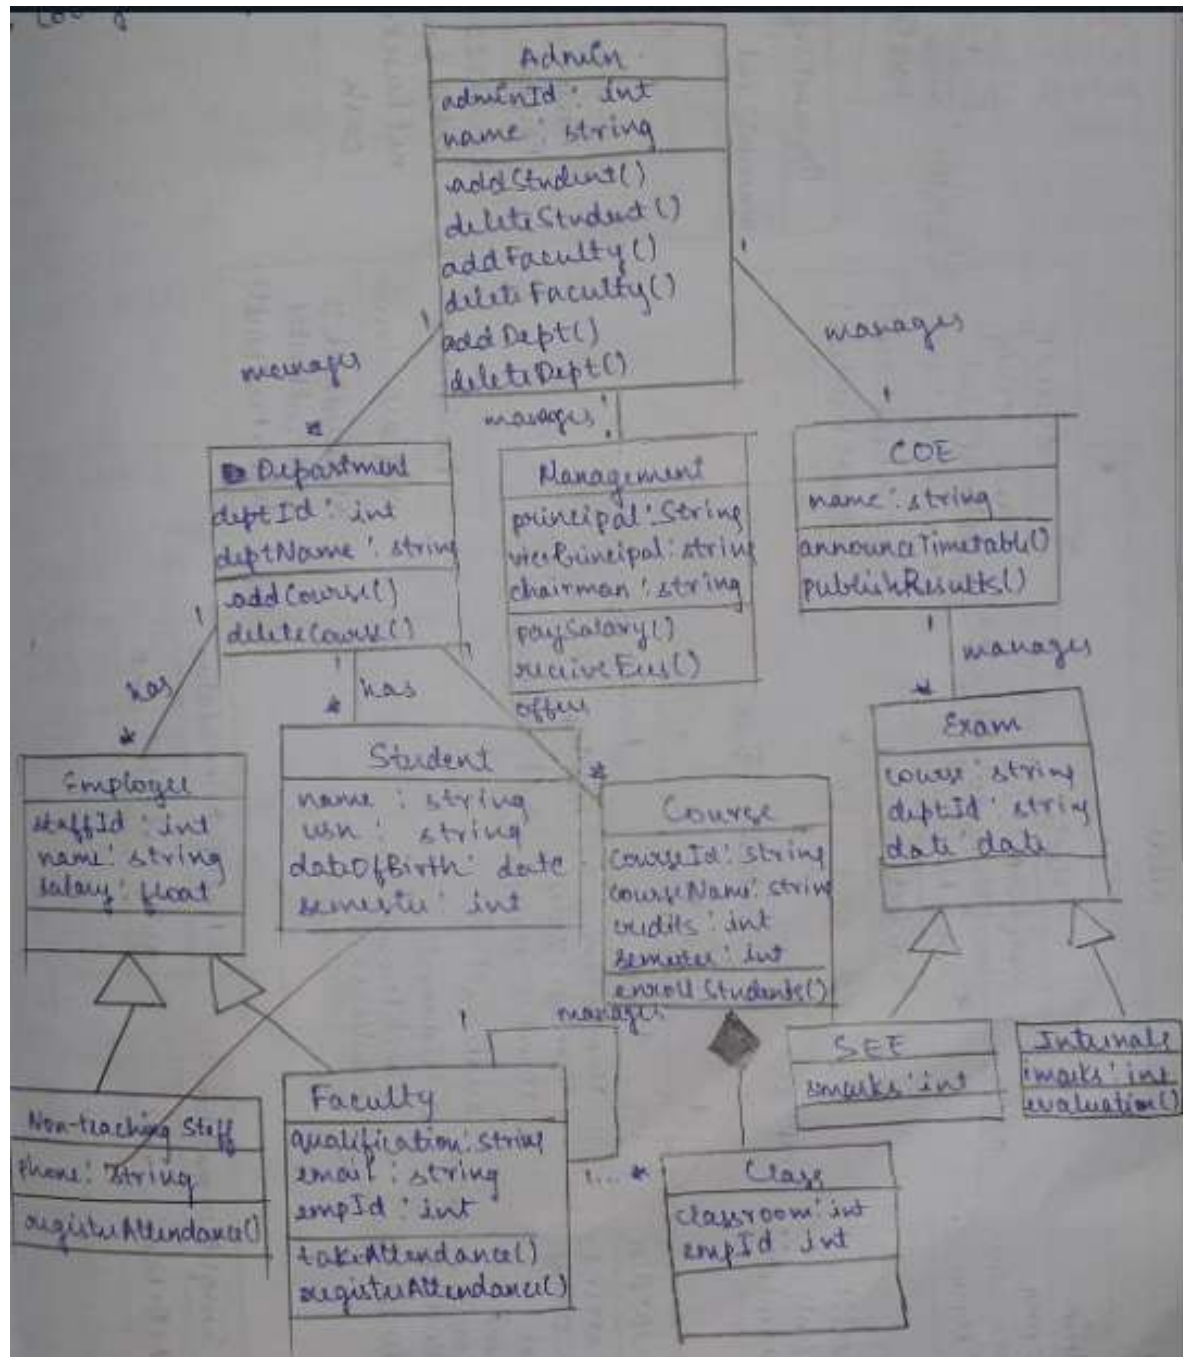 Admin
adminId : int
name : string
addStudent()
deleteStudent()
addFaculty()
deleteFaculty()
addDept()
deleteDept()
1
1
manages
manages
1
manages
1
*
Department
deptId : int
deptName : string
addCourse()
deleteCourse()
Management
principal : String
vicePrincipal : string
chairman : string
paySalary()
reciveFees()
COE
name : string
announceTimetable()
publishResults()
1
1
1
1
has
has
manages
*
*
*
offers
*
Employee
staffId : int
name : string
salary : float
Student
name : string
usn : string
dateOfBirth : date
semester : int
Course
courseId : String
courseName : string
credits : int
semester : int
enrollStudents()
Exam
course : string
deptId : string
date : date
1
manages
1...*
Non-teaching Staff
phone : String
registerAttendance()
Faculty
qualification : String
email : string
empId : int
takeAttendance()
registerAttendance()
Class
classroom : int
empId : int
SEE
smarks : int
Internals
imarks : int
evaluation()